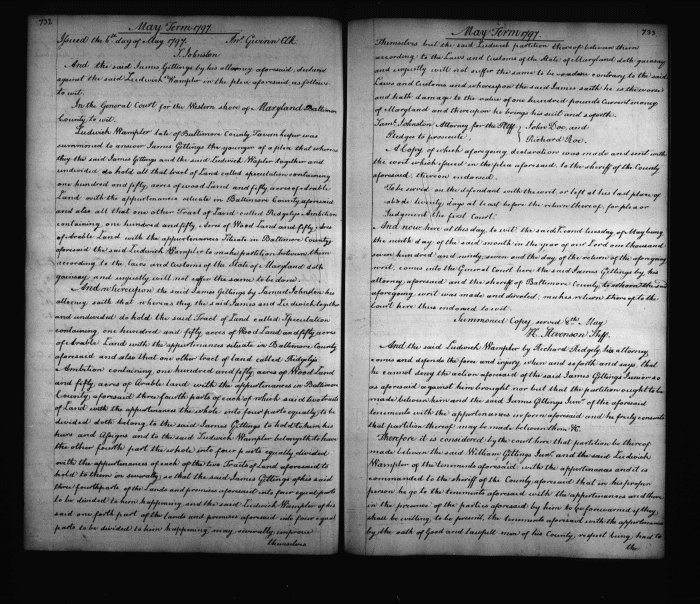 732
May Term 1797.
Issued the 6th day of May 1797. Jno. Gwinn Clk
T. Johnston
And the said James Gittings by his attorney aforesaid, declared
against the said Ludwick Wampler in the plea aforesaid, as follows
to wit.
In the General Court for the Western shore of Maryland Baltimore
County to wit.
Ludwick Wampler late of Baltimore County Tavern keeper was
summoned to answer James Gittings the younger of a plea that whereas
they the said James Gittings and the said Ludwick Wapler together and
undivided do hold all that tract of Land called speculation containing
one hundred and fifty, acres of wood Land and fifty, acres of arable
Land with the appurtenances situate in Baltimore County aforesaid
and also all that one other Tract of Land called Ridgelys Ambition
containing, one hundred and fifty, Acres of Wood Land and fifty, Acres
of Arable Land, with the appurtenances Situate in Baltimore County,
aforesaid the said Ludwick Wampler to make partition between them
according to the laws and customs of the State of Maryland doth
gainsay and unjustly will not suffer the same to be done.
And whereupon the said James Gittings by Samuel Johnston his
attorney, saith that whereas they the said James and Ludwick together
and undivided do hold the said Tract of Land called Speculation
containing one hundred and fifty, acres of Wood Land and fifty, acres
of Arable Land with the appurtenances situate in Baltimore County
aforesaid and also that one other tract of land called Ridgelys
Ambition containing, one hundred and fifty, acres of Wood Land
and fifty, acres of Arable land with the appurtenances in Baltimore
County, aforesaid three fourth parts of each of which said two tracts
of Land with the appurtenances the whole into four parts equally to be
divided doth belong, to the said James Gittings to hold to him his
heirs and Assigns and to the said Ludwick Wampler belongeth to have
the other fourth part the whole into four parts equally divided
with the appurtenances of each of the two Tracts of Land aforesaid to
hold to them in severalty; so that the said James Gittings of his said
three fourth parts of the Lands and premises aforesaid into four equal parts
to be divided to him happening and the said Ludwick Wampler of his
said one forth part of the lands and premises aforesaid into four equal
parts, to be divided to him happening may, severally improve
themselves
May Term 1797.
733
Themselves but the said Ludwick partition thereof between them
according to the Laws and Customs of the State of Maryland doth gainsay
and unjustly will not suffer the same to be contrary to the said
Laws and Customs and whereupon the said James saith he is the worse
and hath damage to the value of one hundred pounds Current money
of Maryland and thereupon he brings his suit and so forth.
Saml. Johnston Attorney for the Plff
Pledges to prosecute
John Doe, and
Richard Roe.
A Copy of which aforegoing declaration was made and sent with
the writ which issued in the plea aforesaid, to the sheriff of the County
aforesaid thereon endorsed.
To be served on the defendant with the writ or left at his last place of
abode twenty days at least before the return thereof, for plea or
Judgment the first Court.
And now here at this day, to wit the second Tuesday of May being
the ninth day of the said month in the year of our Lord one thousand
seven hundred and ninety, seven and the day of the return of the aforegoing
writ, comes into the General Court here the said James Gittings by his
attorney, aforesaid and the sheriff of Baltimore County, to whom the said
aforegoing writ was made and directed, makes return thereof to the
Court here thus endorsed to wit.
Summoned Copy, served 8th May
H. Stevenson Shff.
And the said Ludwick Wampler by Richard Ridgely, his attorney,
comes and defends the force and injury when and so forth and says that
he cannot deny the action aforesaid of the said James Gittings Junior so
as aforesaid against him brought nor but that the partition ought to be
made between him and the said James Gittings Junr. of the aforesaid
tenements with the appurtenances in form aforesaid and he freely consents
that partition thereof may be made between them &c.
Therefore it is considered by the court here that partition be thereof
made between the said William Gittings Junr. and the said Ludwick
Wampler of the tenements aforesaid with the appurtenances and it is
commanded to the sheriff of the County aforesaid that in his proper
person he go to the tenements aforesaid with the appurtenances and there
in the presence of the parties aforesaid by him to be forewarned if they
shall be willing, to be present, the tenements aforesaid with the appurtenances
by, the oath of Good and lawfull men of his County, respect being, had to
the